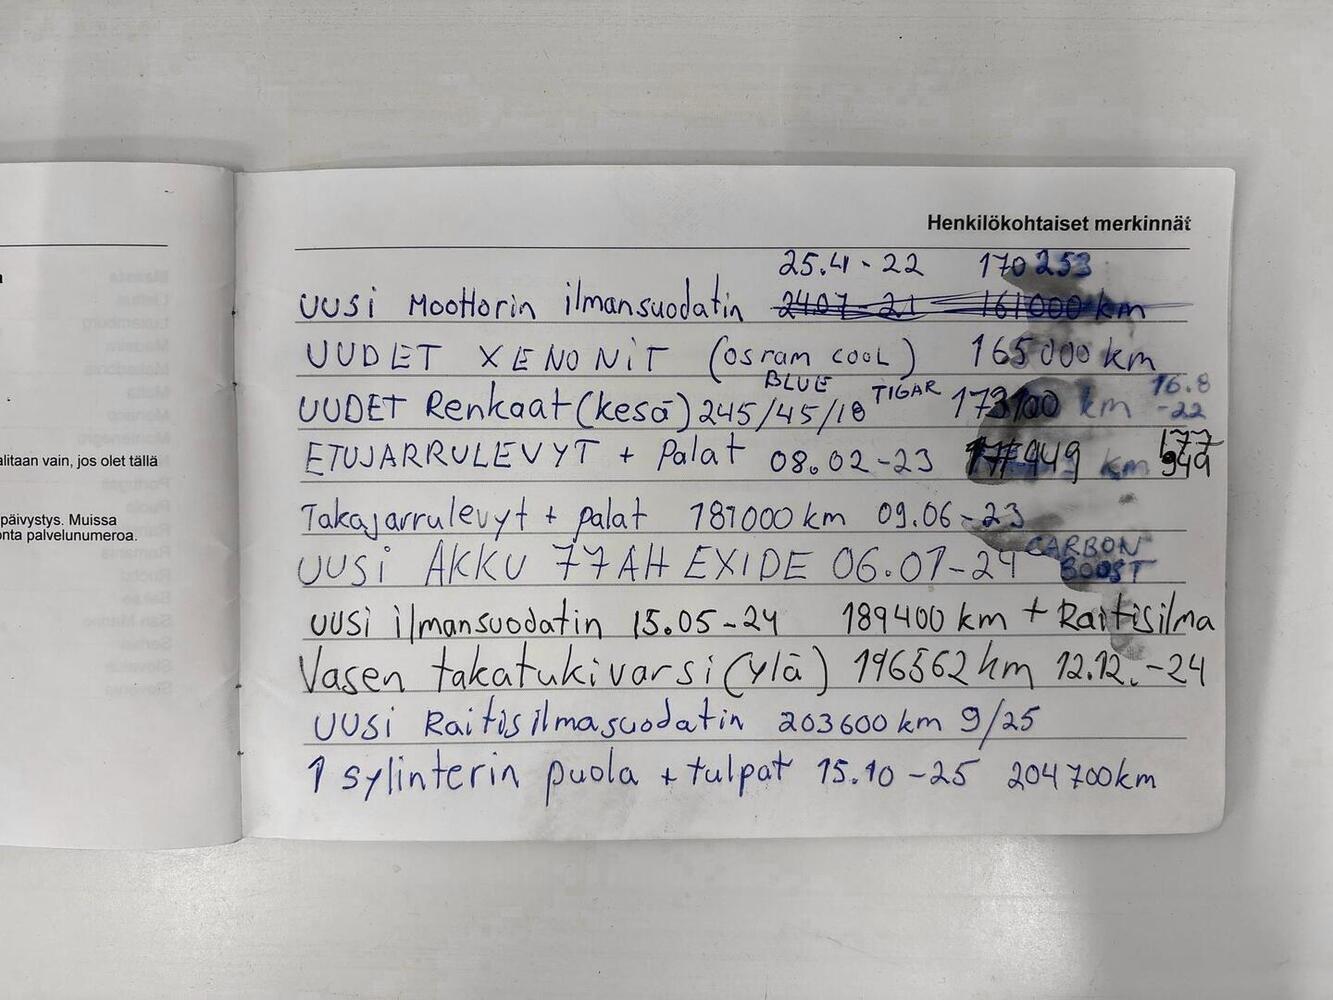 Henkilökohtaiset merkinnät
25.4-22 170253
UUSi MOOttorin ilmansuodatin 2407-21 161000 km
UUDET XENONiT (osram cooL) 165000 km
BLUE TIGAR 16.8
UUDET Renkaat (kesä) 245/45/18 173100 km -22
ETUJARRULEVYT + Palat 08.02-23 949 km 177
949
alitaan vain, jos olet tällä
Takajarrulevyt + palat 181000 km 09.06-23
päivystys. Muissa
onta palvelunumeroa.
CARBON
UUSi AKKU 77AH EXIDE 06.01-24 BOOST
UUSi ilmansuodatin 15.05-24 189400 km + Raitisilma
Vasen takatukivarsi (ylä) 196562 km 12.12.-24
UUSi Raitisilmasuodatin 203600 km 9/25
1 sylinterin puola + tulpat 15.10-25 204700km